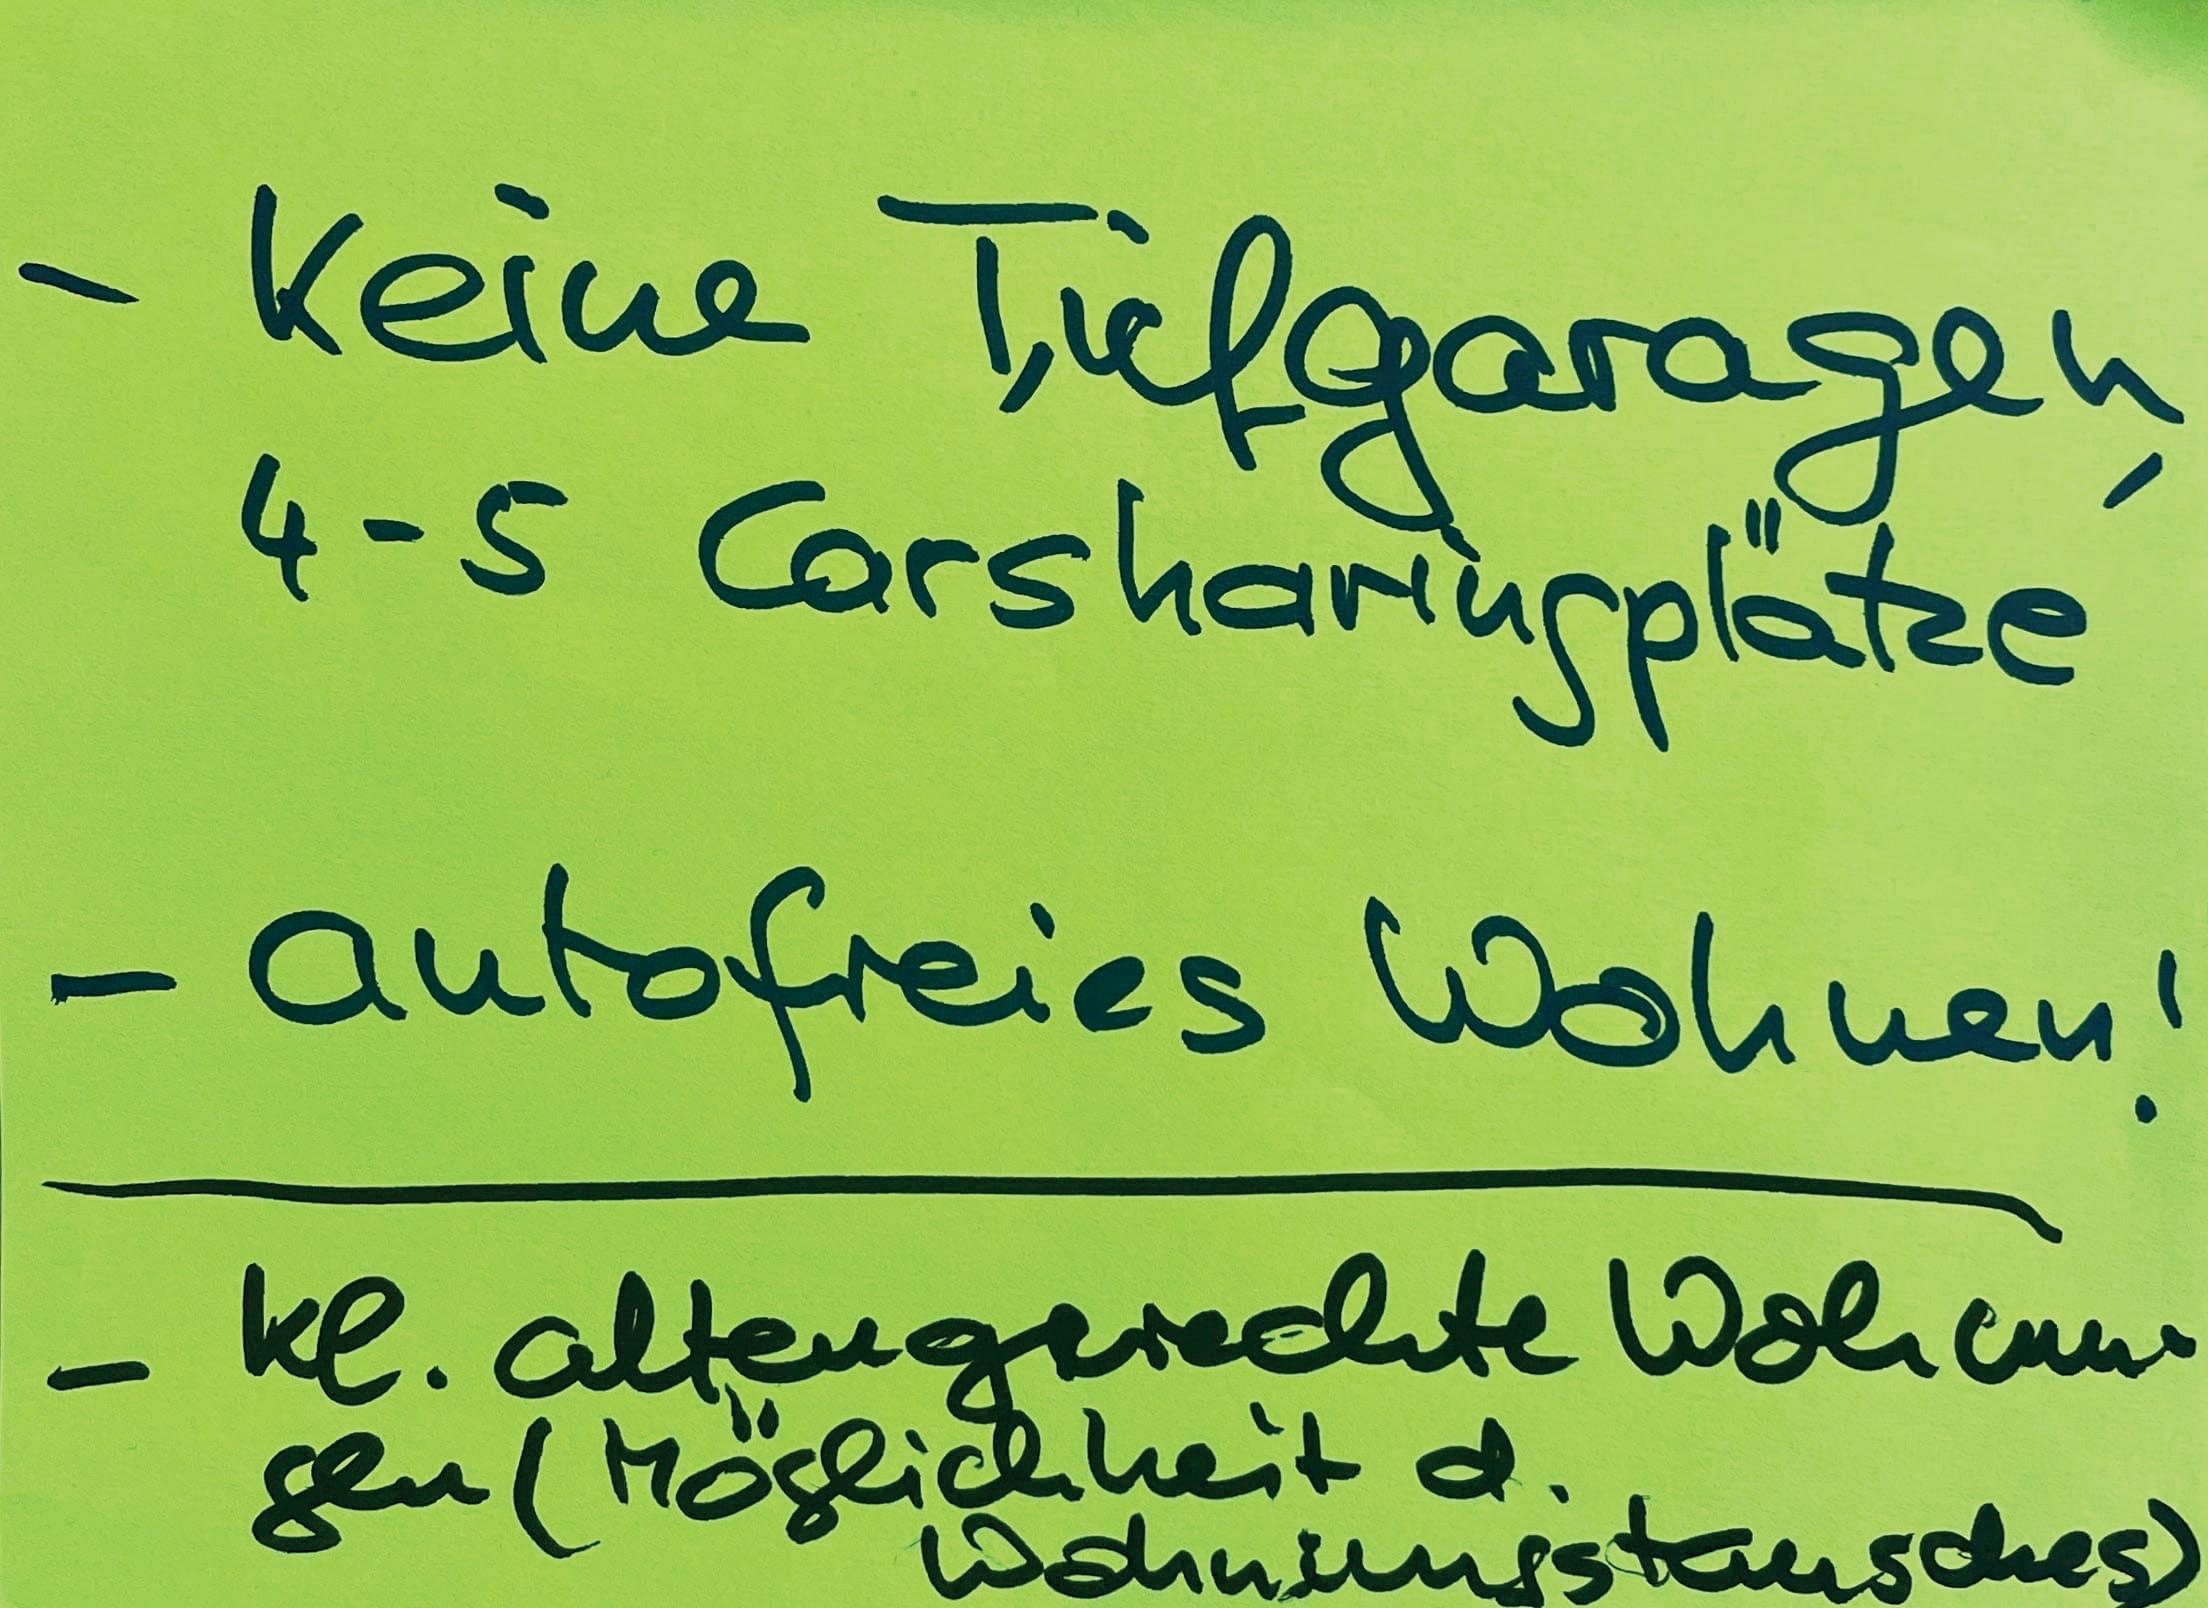 - Keine Tiefgaragen,
4-5 Carsharingplätze
- autofreies Wohnen!
- kl. altengerechte Wohnun-
gen (Möglichkeit d.
Wohnungstausches)